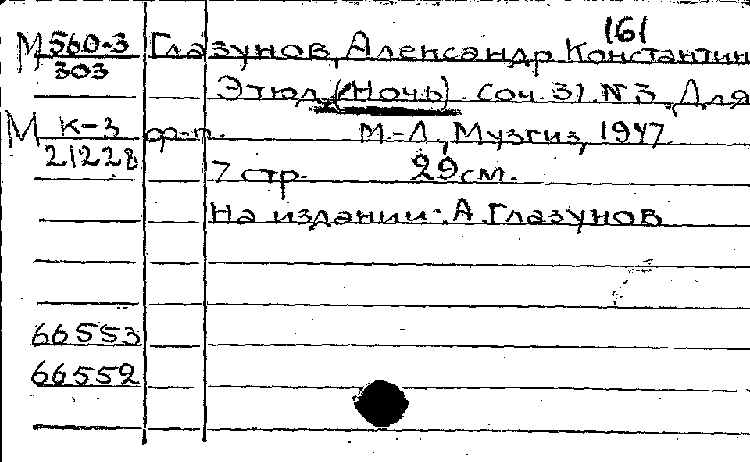 161
М 560-3 Глазунов, Александр Константин
303
Этюд (Ночь) Соч. 31. №3. Для
М К-3 ф-п. М-Л, Музгиз, 1947.
21228
7 стр. 29 см.
На издании: А. Глазунов
66553
66552